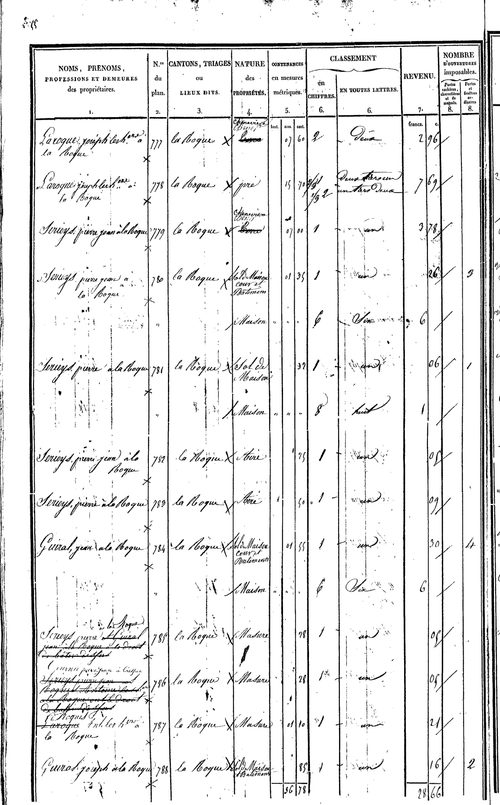 NOMS, PRÉNOMS, PROFESSIONS ET DEMEURES des propriétaires.
N.os du plan.
CANTONS, TRIAGES ou LIEUX DITS.
NATURE des PROPRIÉTÉS.
CONTENANCES en mesures métriques.
CLASSEMENT
en CHIFFRES.
EN TOUTES LETTRES.
REVENU.
NOMBRE D'OUVERTURES imposables.
1. 2. 3. 4. 5. 6. 6. 7. 8. 8.
francs. c.
Laroque, joseph à la Roque 777 la Roque 07 60 2 Deux 2 96
Laroque joseph à la Roque 778 la Roque pré 15 70 7 69
Serieys, pierre jean à la Roque 779 la Roque 07 00 1 un 3 78
Serieys pierre jean à la Roque 780 la Roque Sol de Maison cour et Batiment 01 35 1 un 26 3
Maison 6 Six 6
Serieys, pierre à la Roque 781 la Roque Sol de Maison 32 1 un 06 1
Maison 8 huit 1
Serieys, pierre jean à la Roque 782 la Roque Aire 25 1 un 05
Serieys, pierre à la Roque 783 la Roque Aire 50 1 un 09
Guiral, jean à la Roque 784 la Roque Sol de Maison cour et Batiments 01 55 1 un 30 4
Maison 6 Six 6
à la Roque
Serieys pierre 785 la Roque Masure 28 1 un 05
786 la Roque Masure 28 1 un 05
à la Roque 787 la Roque Masure 01 10 1 un 21
Guiral, joseph à la Roque 788 la Roque Sol de Maison et Batiments 85 1 un 16 2
36 78
28 66